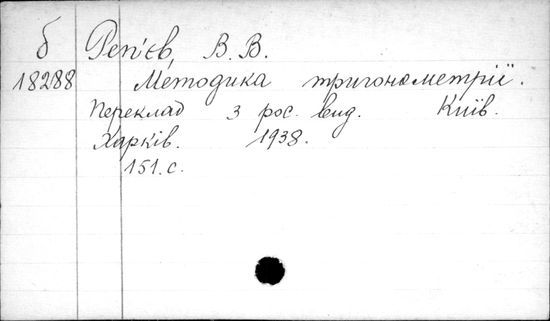 б Реп'єв, В. В.
18288 Методика тригонометрії.
Переклад з рос. вид. Київ.
Харків. 1938.
151. с.